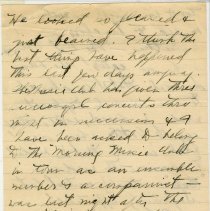 He looked so pleased &
just beamed. I think the
best things have happened
this last few days anyway
Music Club has given three
concerts thro
out in succession & I
have been asked to belong
to The Morning Music Club
in town as an
member & accompanist
was last night after. The